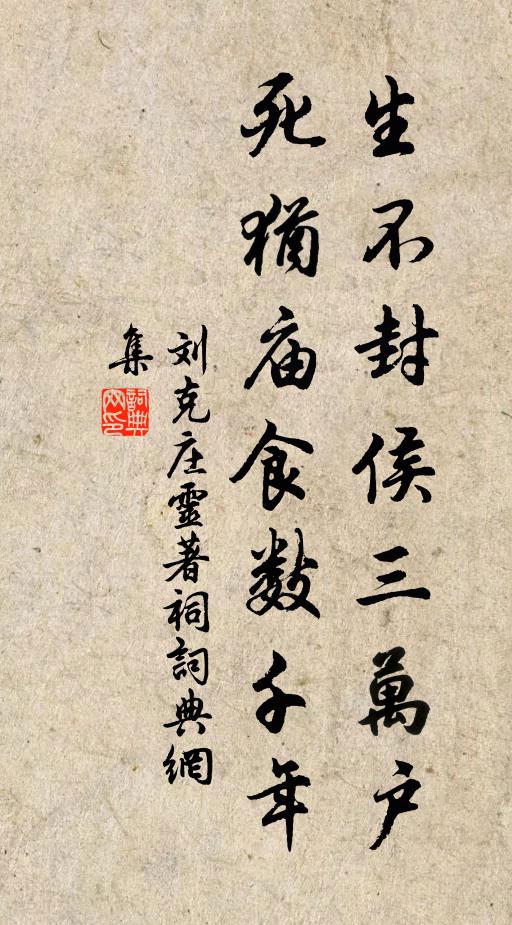 生不封侯三萬户
死猶庙食数千年
刘克庄靈著祠詞典網
集
詞典
网印